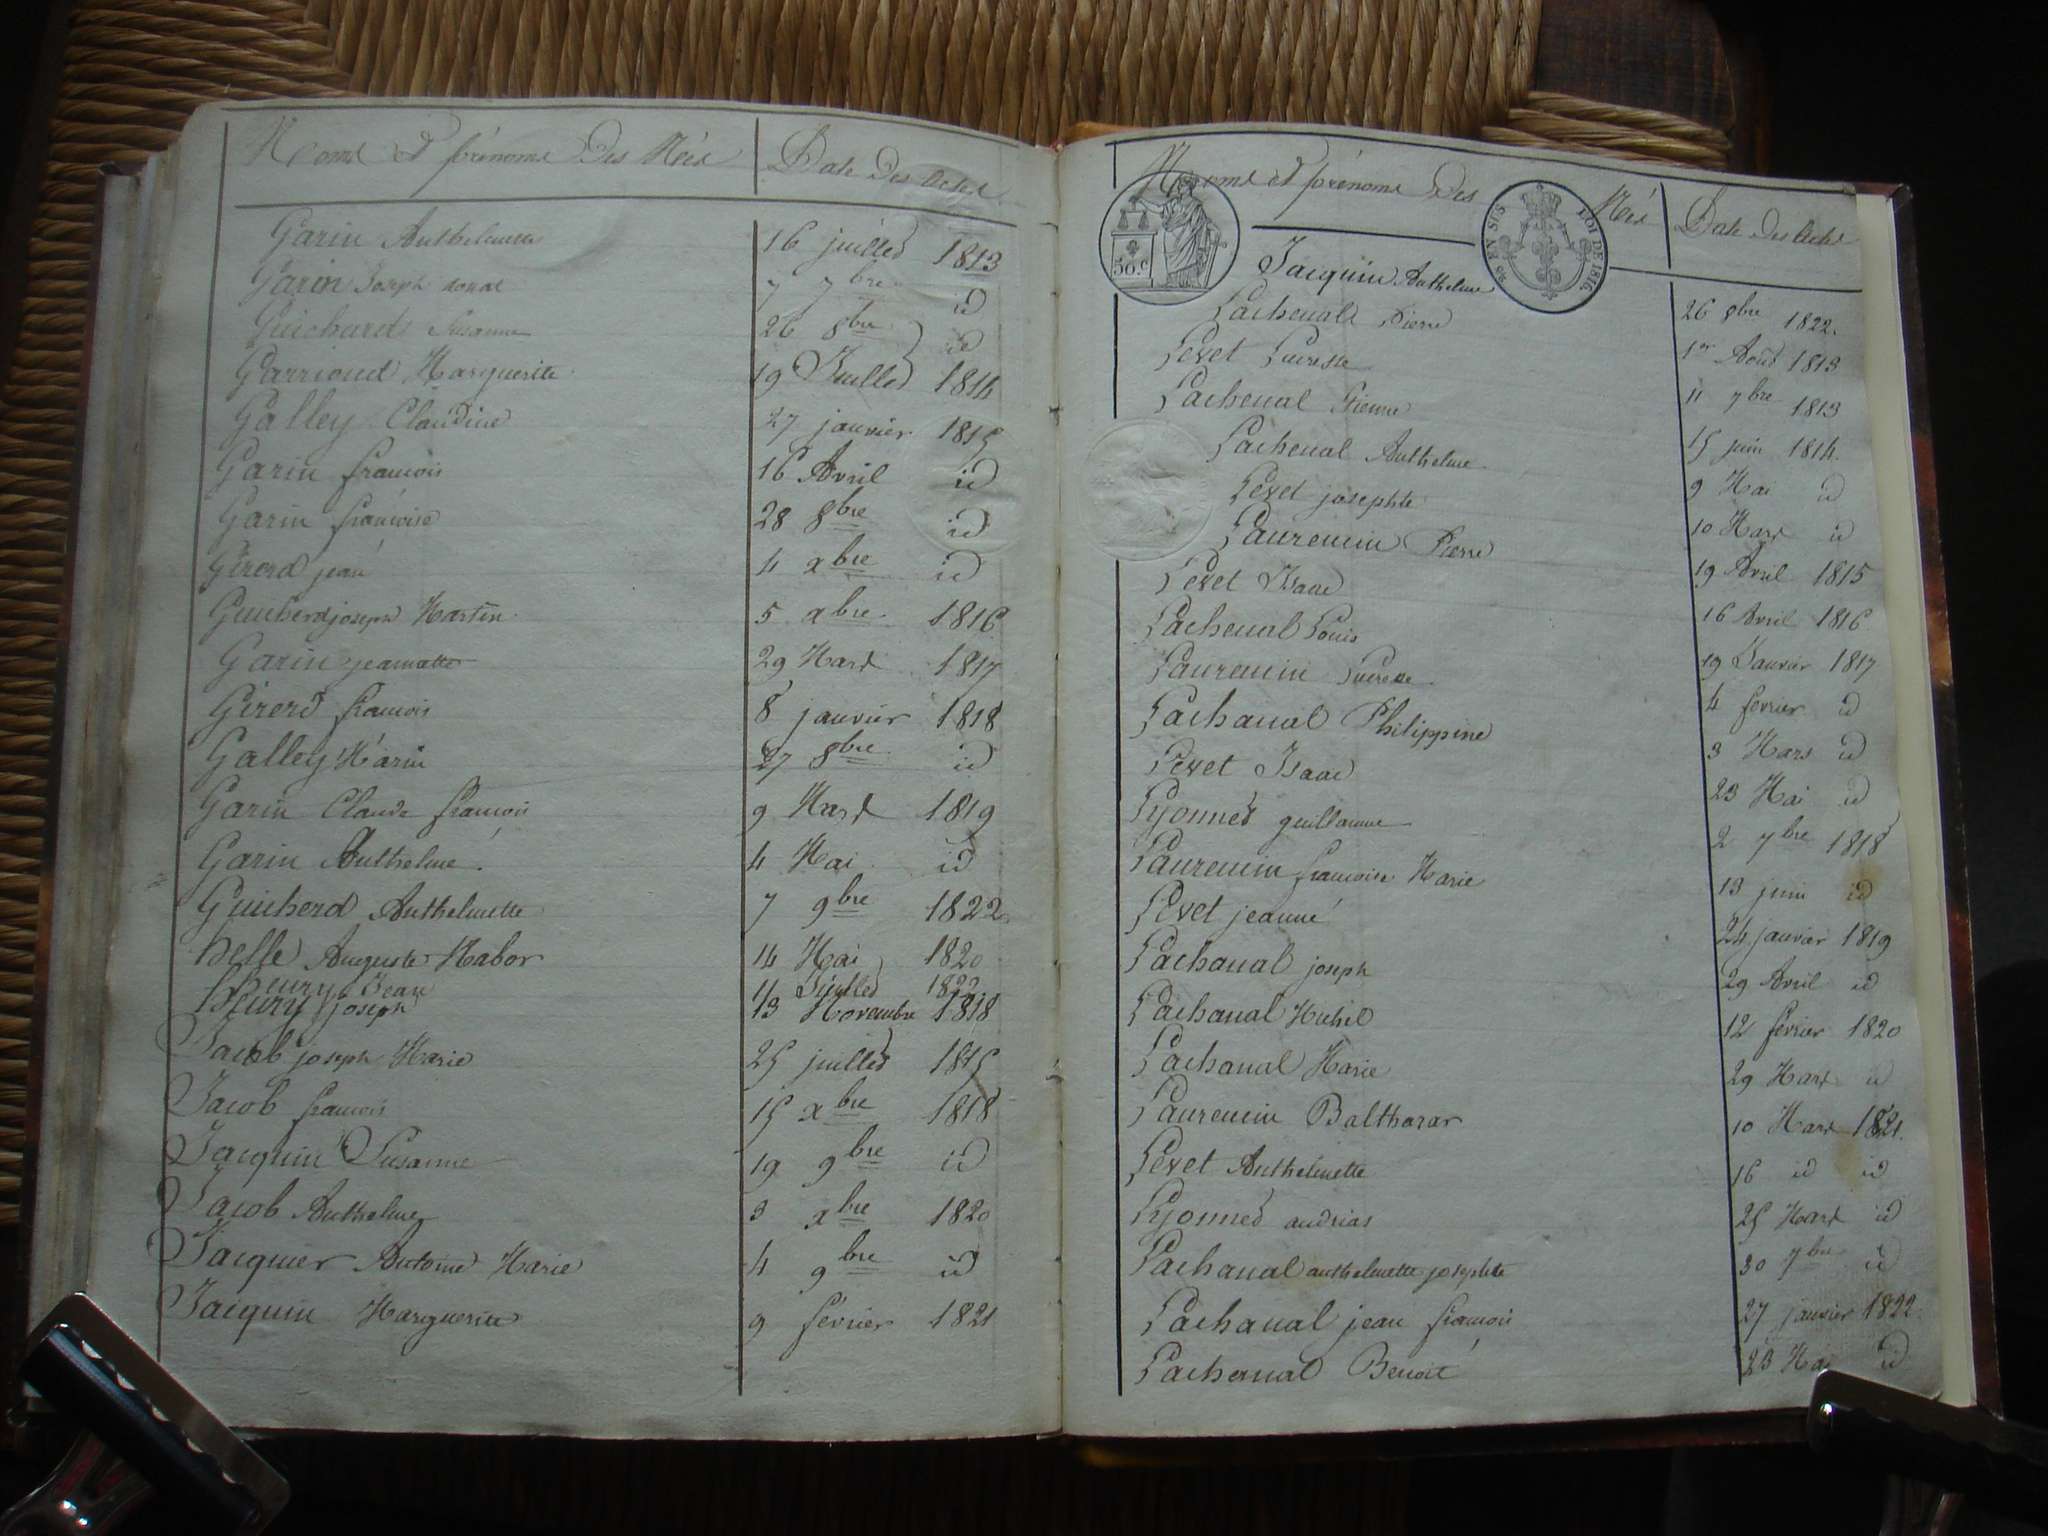 Noms et prénoms Des Nés Date Des Actes
Garin Anthelmette 16 juillet 1813
Garin Joseph 7 7bre id
Guichard Susanne 26 8bre id
Garrioud Marguerite 19 Juillet 1814
Galley Claudine 27 janvier 1815
Garin francois 16 Avril id
Garin francoise 28 8bre id
Girerd jean 4 xbre id
Guicherd joseph Martin 5 xbre 1816
Garin jeannette 29 Mars 1817
Girerd francois 8 janvier 1818
Galley Marie 27 8bre id
Garin Claude francois 9 Mars 1819
Garin Anthelme 4 Mai id
Guicherd Anthelmette 7 9bre 1822
helle Auguste Nabor 14 Mai 1820
heury Jean 11 Juillet 1822
heury joseph 13 Novembre 1818
Jacob joseph Marie 25 juillet 1815
Jacob francois 15 xbre 1818
Jacquin Susanne 19 9bre id
Jacob Anthelme 3 xbre 1820
Jacquier Antoine Marie 4 9bre id
Jacquin Marguerite 9 février 1821
Noms et prénoms Des Nés Date Des Actes
50.c
EN SUS LOI DE 1816.
Jacquin Anthelme 26 8bre 1822.
Lachenal Pierre 1er Aout 1813
Levet Lucresse 11 7bre 1813
Lachenal Pierre 15 juin 1814.
Lachenal Anthelme 9 Mai id
Levet josephte 10 Mars id
Laurencin Pierre 19 Avril 1815
Levet Isaac 16 Avril 1816
Lachenal Louis 19 Janvier 1817
Laurencin Lucresse 4 fevrier id
Lachanal Philippine 3 Mars id
Levet Isaac 23 Mai id
Lyonned guillaume 2 7bre 1818
Laurencin francoise Marie 13 juin id
Levet jeanne 24 janvier 1819
Lachanal joseph 29 Avril id
Lachanal Michel 12 fevrier 1820
Lachanal Marie 29 Mars id
Laurencin Balthazar 10 Mars 1821.
Levet Anthelmette 16 id id
Lyonned andrias 25 Mars id
Lachanal anthelmette josephte 30 7bre id
Lachanal jean francois 27 janvier 1822
Lachenal Benoit 23 Mai id